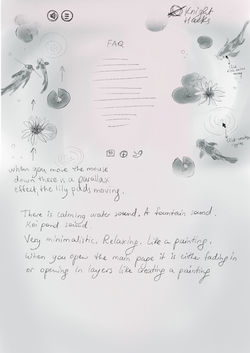 Knight
Hacks
FAQ
when you move the mouse
down there is a parallax
effect, the lily pads moving.
There is calming water sound. A fountain sound.
Koi pond sound.
Very minimalistic. Relaxing. Like a painting.
When you open the main page it is either fading in
or opening in layers like creating a painting